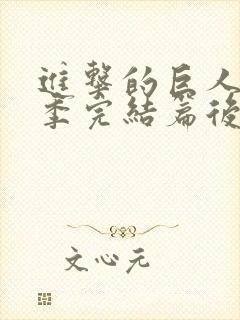 進擊的巨人
季完結篇後
文心元